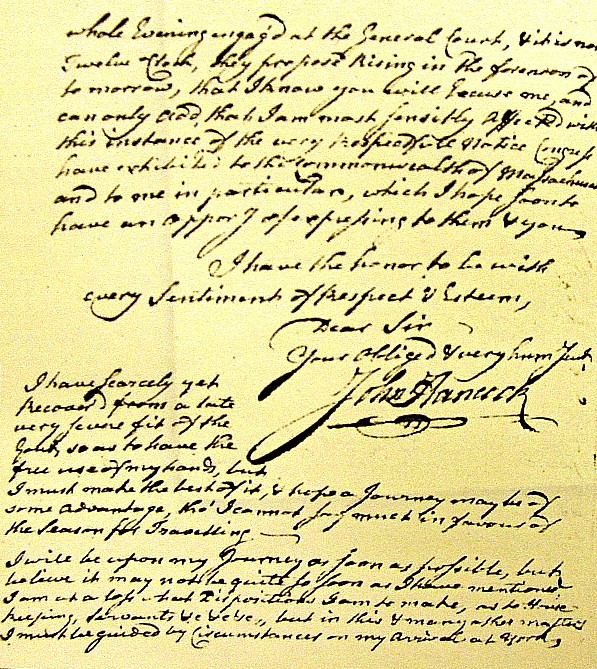 whole Evening engag'd at the General Court, & it is now
Twelve Clock, they propose Rising in the forenoon of
to morrow, that I know you will Excuse me, and
can only add, that I am most sensibly affected with
this instance of the very Respectfull notice Congress
have exhibited to the Commonwealth of Massachuse
and to me in particular, which I hope soon to
have an oppory of expressing to them & you,
I have the honor to be with
every Sentiment of Respect & Esteem,
Dear Sir
Your Obliged & very hum Servt
John Hancock
I have scarcely yet
Recover'd from a late
very severe fit of the
Gout, so as to have the
free use of my hand, but
I must make the best of it, & hope a Journey may be of
some advantage, tho' I cannot say much in favour of
the Season for Travelling
I will be upon my Journey as soon as possible, but
believe it may not be quite so soon as I have mentioned
I am at a loss what Dispositions I am to make, as to House
keeping, servants &c &c, but in this & many other matters
I must be guided by Circumstances on my arrival at York,